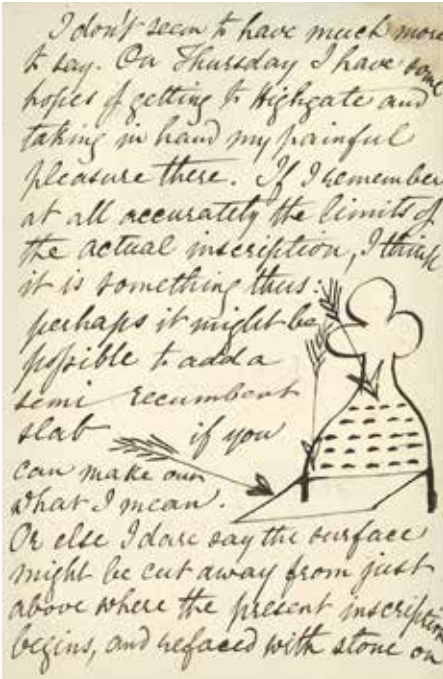 I don't seem to have much more
to say. On Thursday I have some
hopes of getting to Highgate and
taking in hand my painful
pleasure there. If I remember
at all accurately the limits of
the actual inscription, I think
it is something thus:
perhaps it might be
possible to add a
semi recumbent
slab if you
can make out
what I mean.
Or else I dare say the surface
might be cut away from just
above where the present inscription
begins, and refaced with stone or